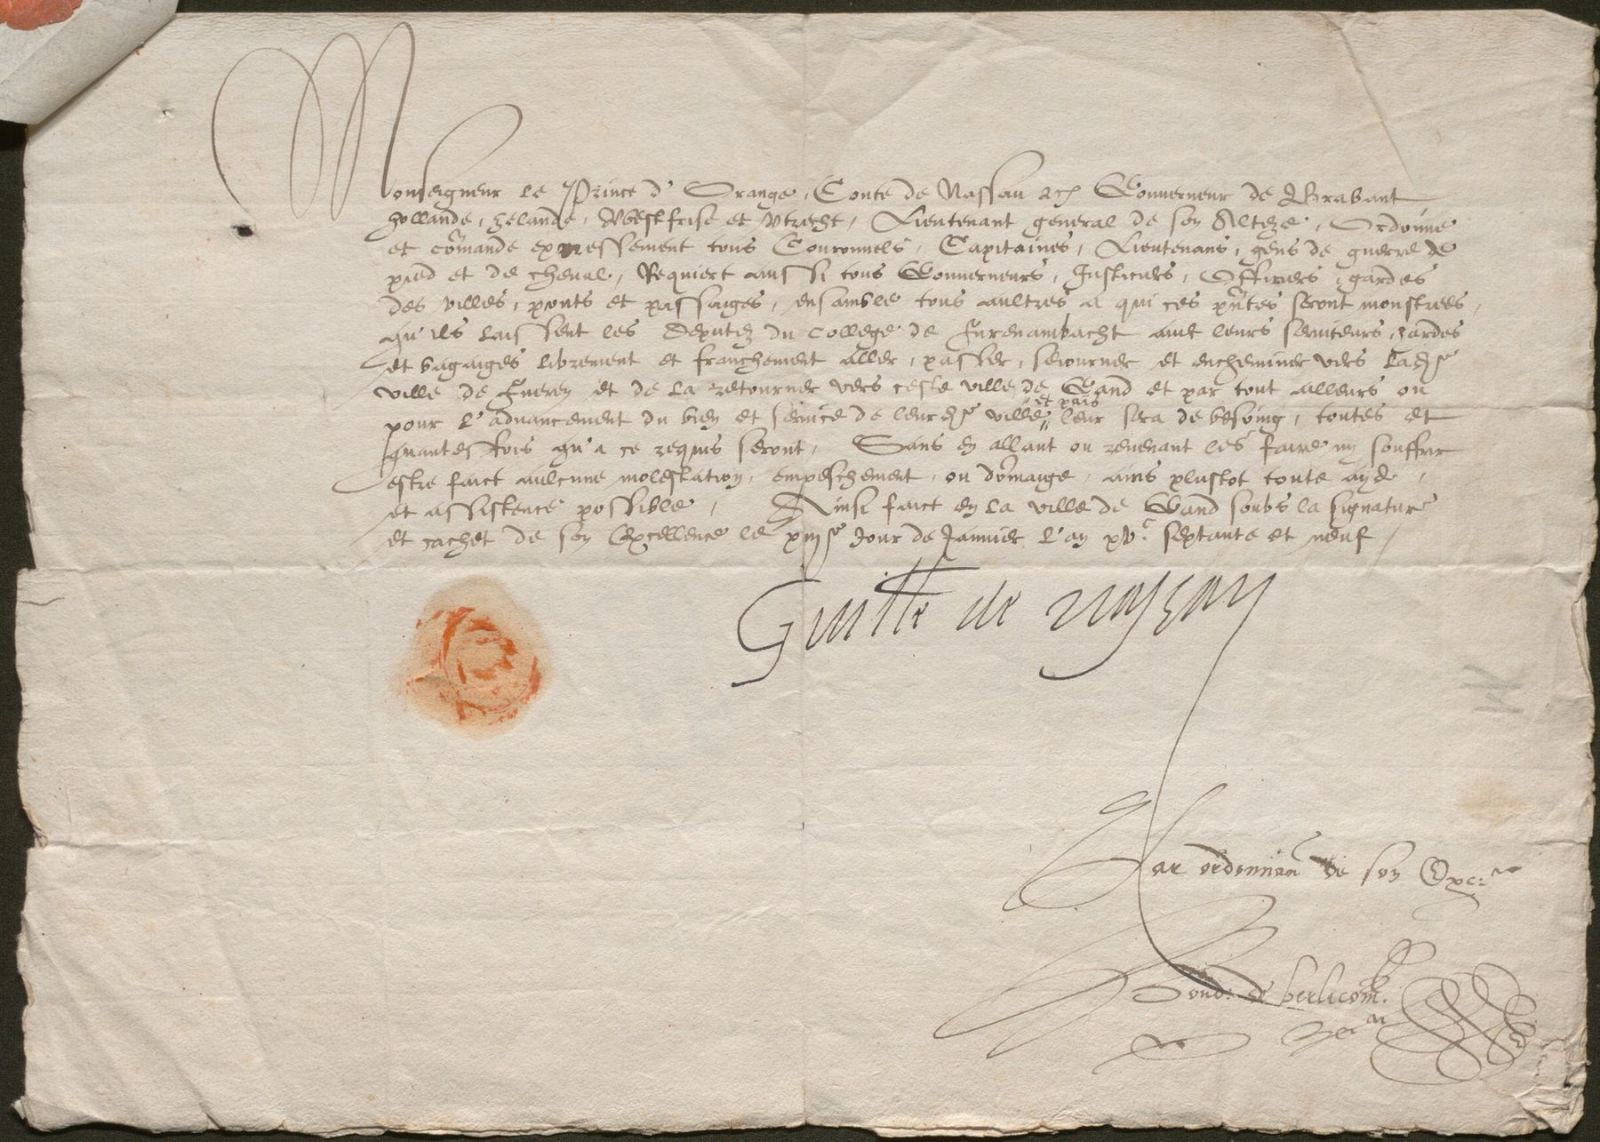 Monseigneur le Prince d'Orange, Conte de Nassau etc Gouverneur de Brabant
hollande, zelande, Westfrise et Utrecht, Lieutenant general de son Alteze, Ordonne
et comande expressement tous Couronnels, Capitaines, Lieutenans, gens de guerre de
pied et de cheval, Requiert aussi tous Gouverneurs, Justiciers, Officiers, gardes
des villes, ponts et passaiges, ensamble tous aultres a qui ces pntes seront monstrees,
qu'ils laissent les deputez du College de Furenambacht avec leurs serviteurs, hardes
et bagaiges librement et franchement aller, passer, sejourner et encheminer vers ladse
ville de Fueren et de la retourner vers ceste ville de Gand et par tout alleurs ou
pour l'advancement du bien et service de leurdse ville et pais leur sera de besoing, toutes et
quantesfois qu'a ce requis seront, Sans en allant ou revenant les faire ny souffrir
estre faict aulcune molestation, empeschement, ou domaige, ains plustot toute ayde,
et assistence possible, Ainsi faict en la ville de Gand soubs la signature
et cachet de son Excellence le xiije jour de Janvier l'an xvc septante et neuf,
Guille de nassau
Par ordonnan de son Exce
de berlicom